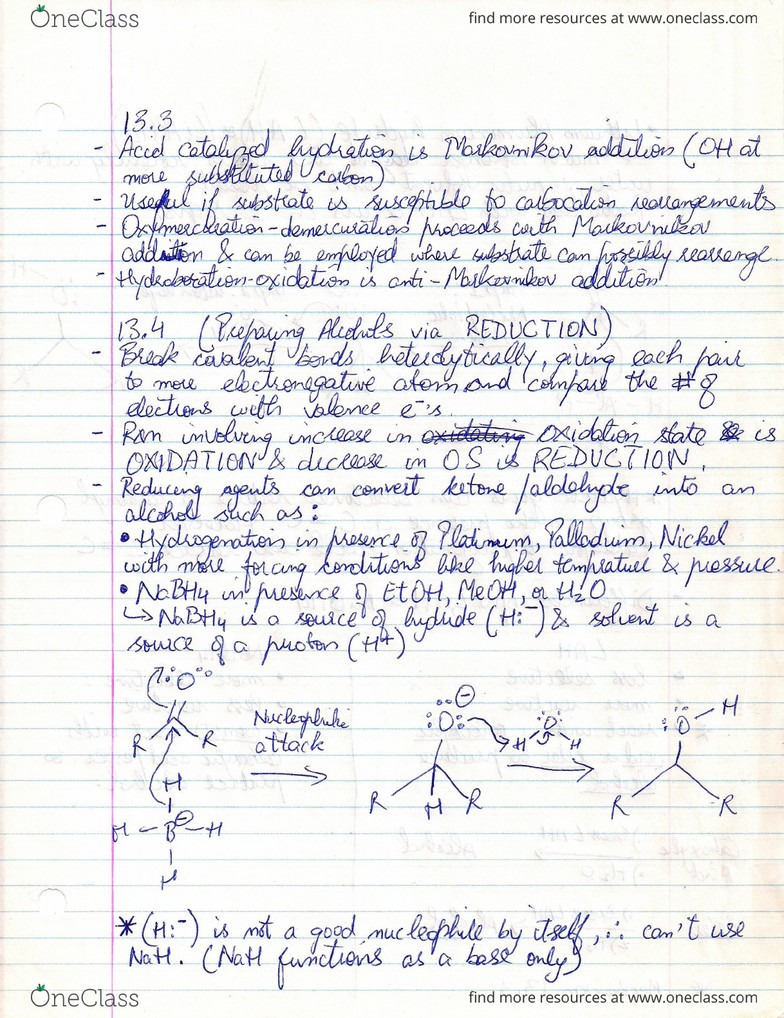 OneClass
find more resources at www.oneclass.com
13.3
- Acid catalyzed hydration is Markovnikov addition (OH at
more substituted carbon)
- Useful if substrate is susceptible to carbocation rearrangements
- Oxymercuration-demercuration proceeds with Markovnikov
addition & can be employed where substrate can possibly rearrange.
- Hydroboration-oxidation is anti-Markovnikov addition
13.4 (Preparing Alcohols via REDUCTION)
- Break covalent bonds heterolytically, giving each pair
to more electronegative atom and compare the # of
electrons with valence e⁻'s.
- Rxn involving increase in oxidation state is
OXIDATION & decrease in OS is REDUCTION.
- Reducing agents can convert ketone/aldehyde into an
alcohol such as:
• Hydrogenation in presence of Platinum, Palladium, Nickel
with more forcing conditions like higher temprature & pressure.
• NaBH4 in presence of EtOH, MeOH, or H2O
↳ NaBH4 is a source of hydride (H:⁻) & solvent is a
source of a proton (H⁺)
:O: ⊖ :O: O H
Nucleophilic
attack
R R H O H
H R H R R R
H - B⊖ - H
H
* (H:⁻) is not a good nucleophile by itself, ∴ can't use
NaH. (NaH functions as a base only)
OneClass
find more resources at www.oneclass.com